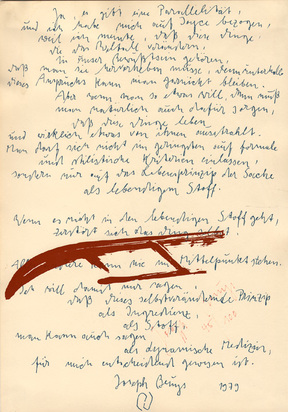 Ja, es gibt eine Parallelität,
und ich habe mich auf Joyce bezogen,
weil ich meinte, daß diese Dinge,
die die Gestalt verändern,
in unser Bewußtsein gehören,
daß man sie erforschen müsse, denn unterhalb
dieses Anspruchs kann man garnicht bleiben.
Aber wenn man so etwas will, dann muß
man natürlich auch dafür sorgen,
daß diese Dinge leben
und wirklich etwas von ihnen ausstrahlt.
Man darf sich nicht im geringsten auf formale
und stilistische Kriterien einlassen,
sondern nur auf das Lebensprinzip der Sache
als lebendigem Stoff.
Wenn es nicht in den lebendigen Stoff geht,
zerstört sich das Ding selbst.
Alles andere kann nie im Mittelpunkt stehen.
Ich will damit nur sagen
daß dieses selbstverändernde Prinzip
als Ingredienz
als Stoff,
man kann auch sagen
als dynamische Medizin,
für mich entscheidend gewesen ist.
Joseph Beuys 1979